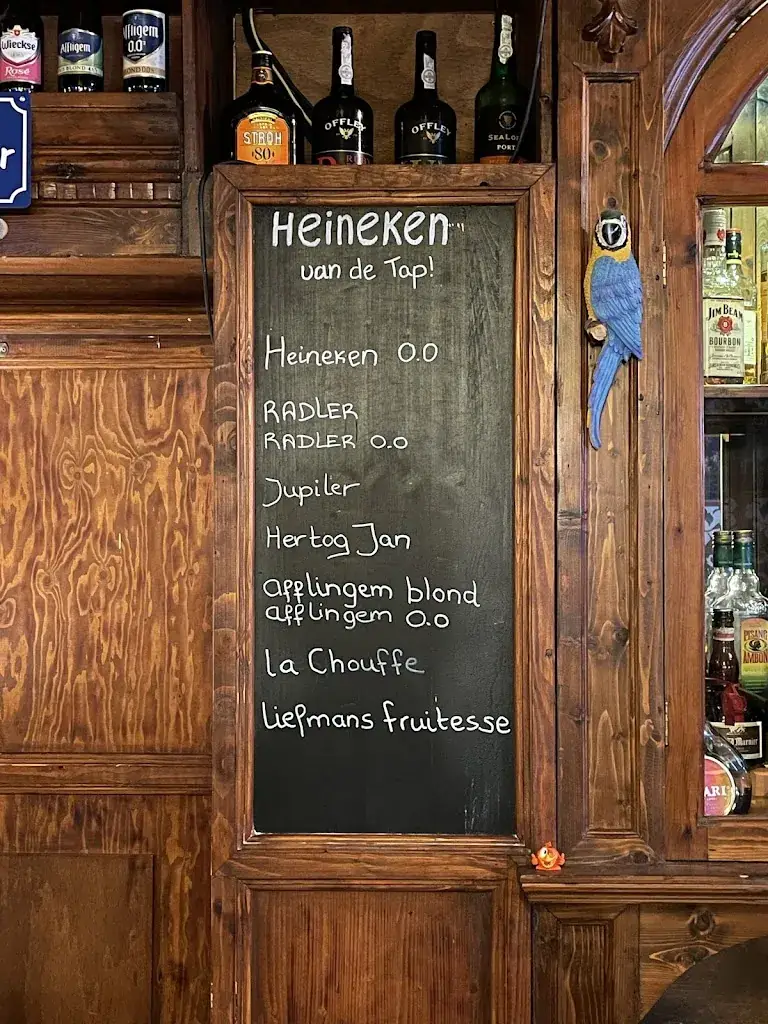 Wieckse
Rosé
Affligem
BLOND
Affligem
0.0%
BLOND
r
STROH
80
OFFLEY
OFFLEY
PORT
Heineken
van de Tap!
Heineken 0.0
RADLER
RADLER 0.0
Jupiler
Hertog Jan
afflingem blond
afflingem 0.0
la Chouffe
liefmans fruitesse
JIM BEAM
BOURBON
PISANG
AMBON
Marnier